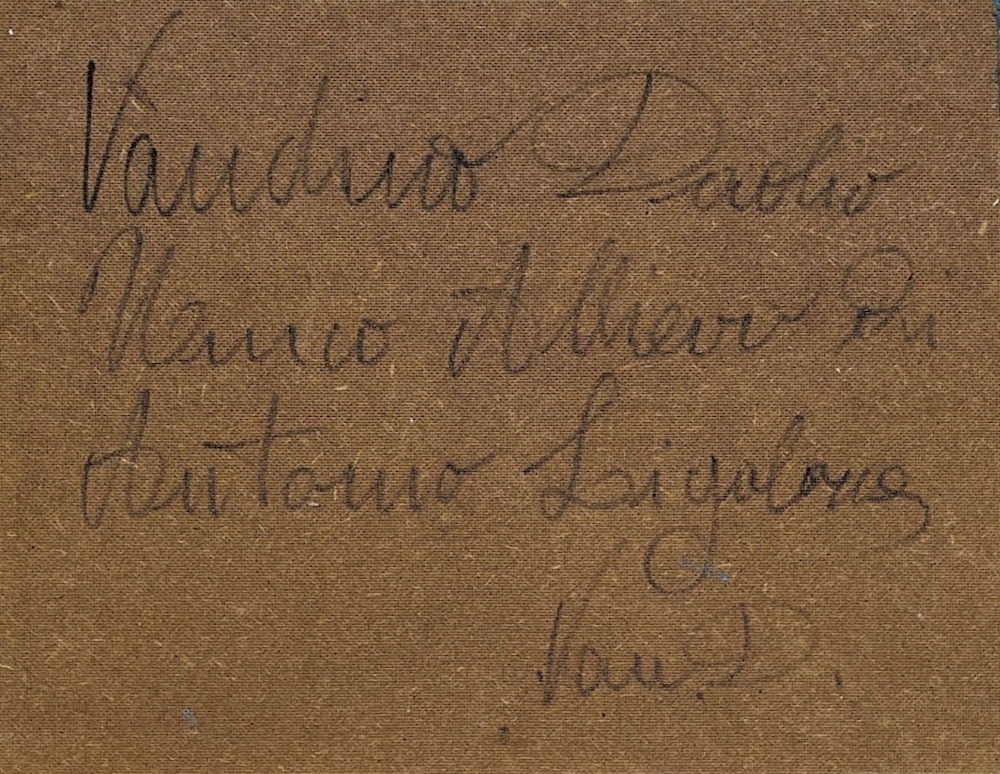 Vandino Daolio
Unico Allievo Di
Antonio Ligabue
Van. D.